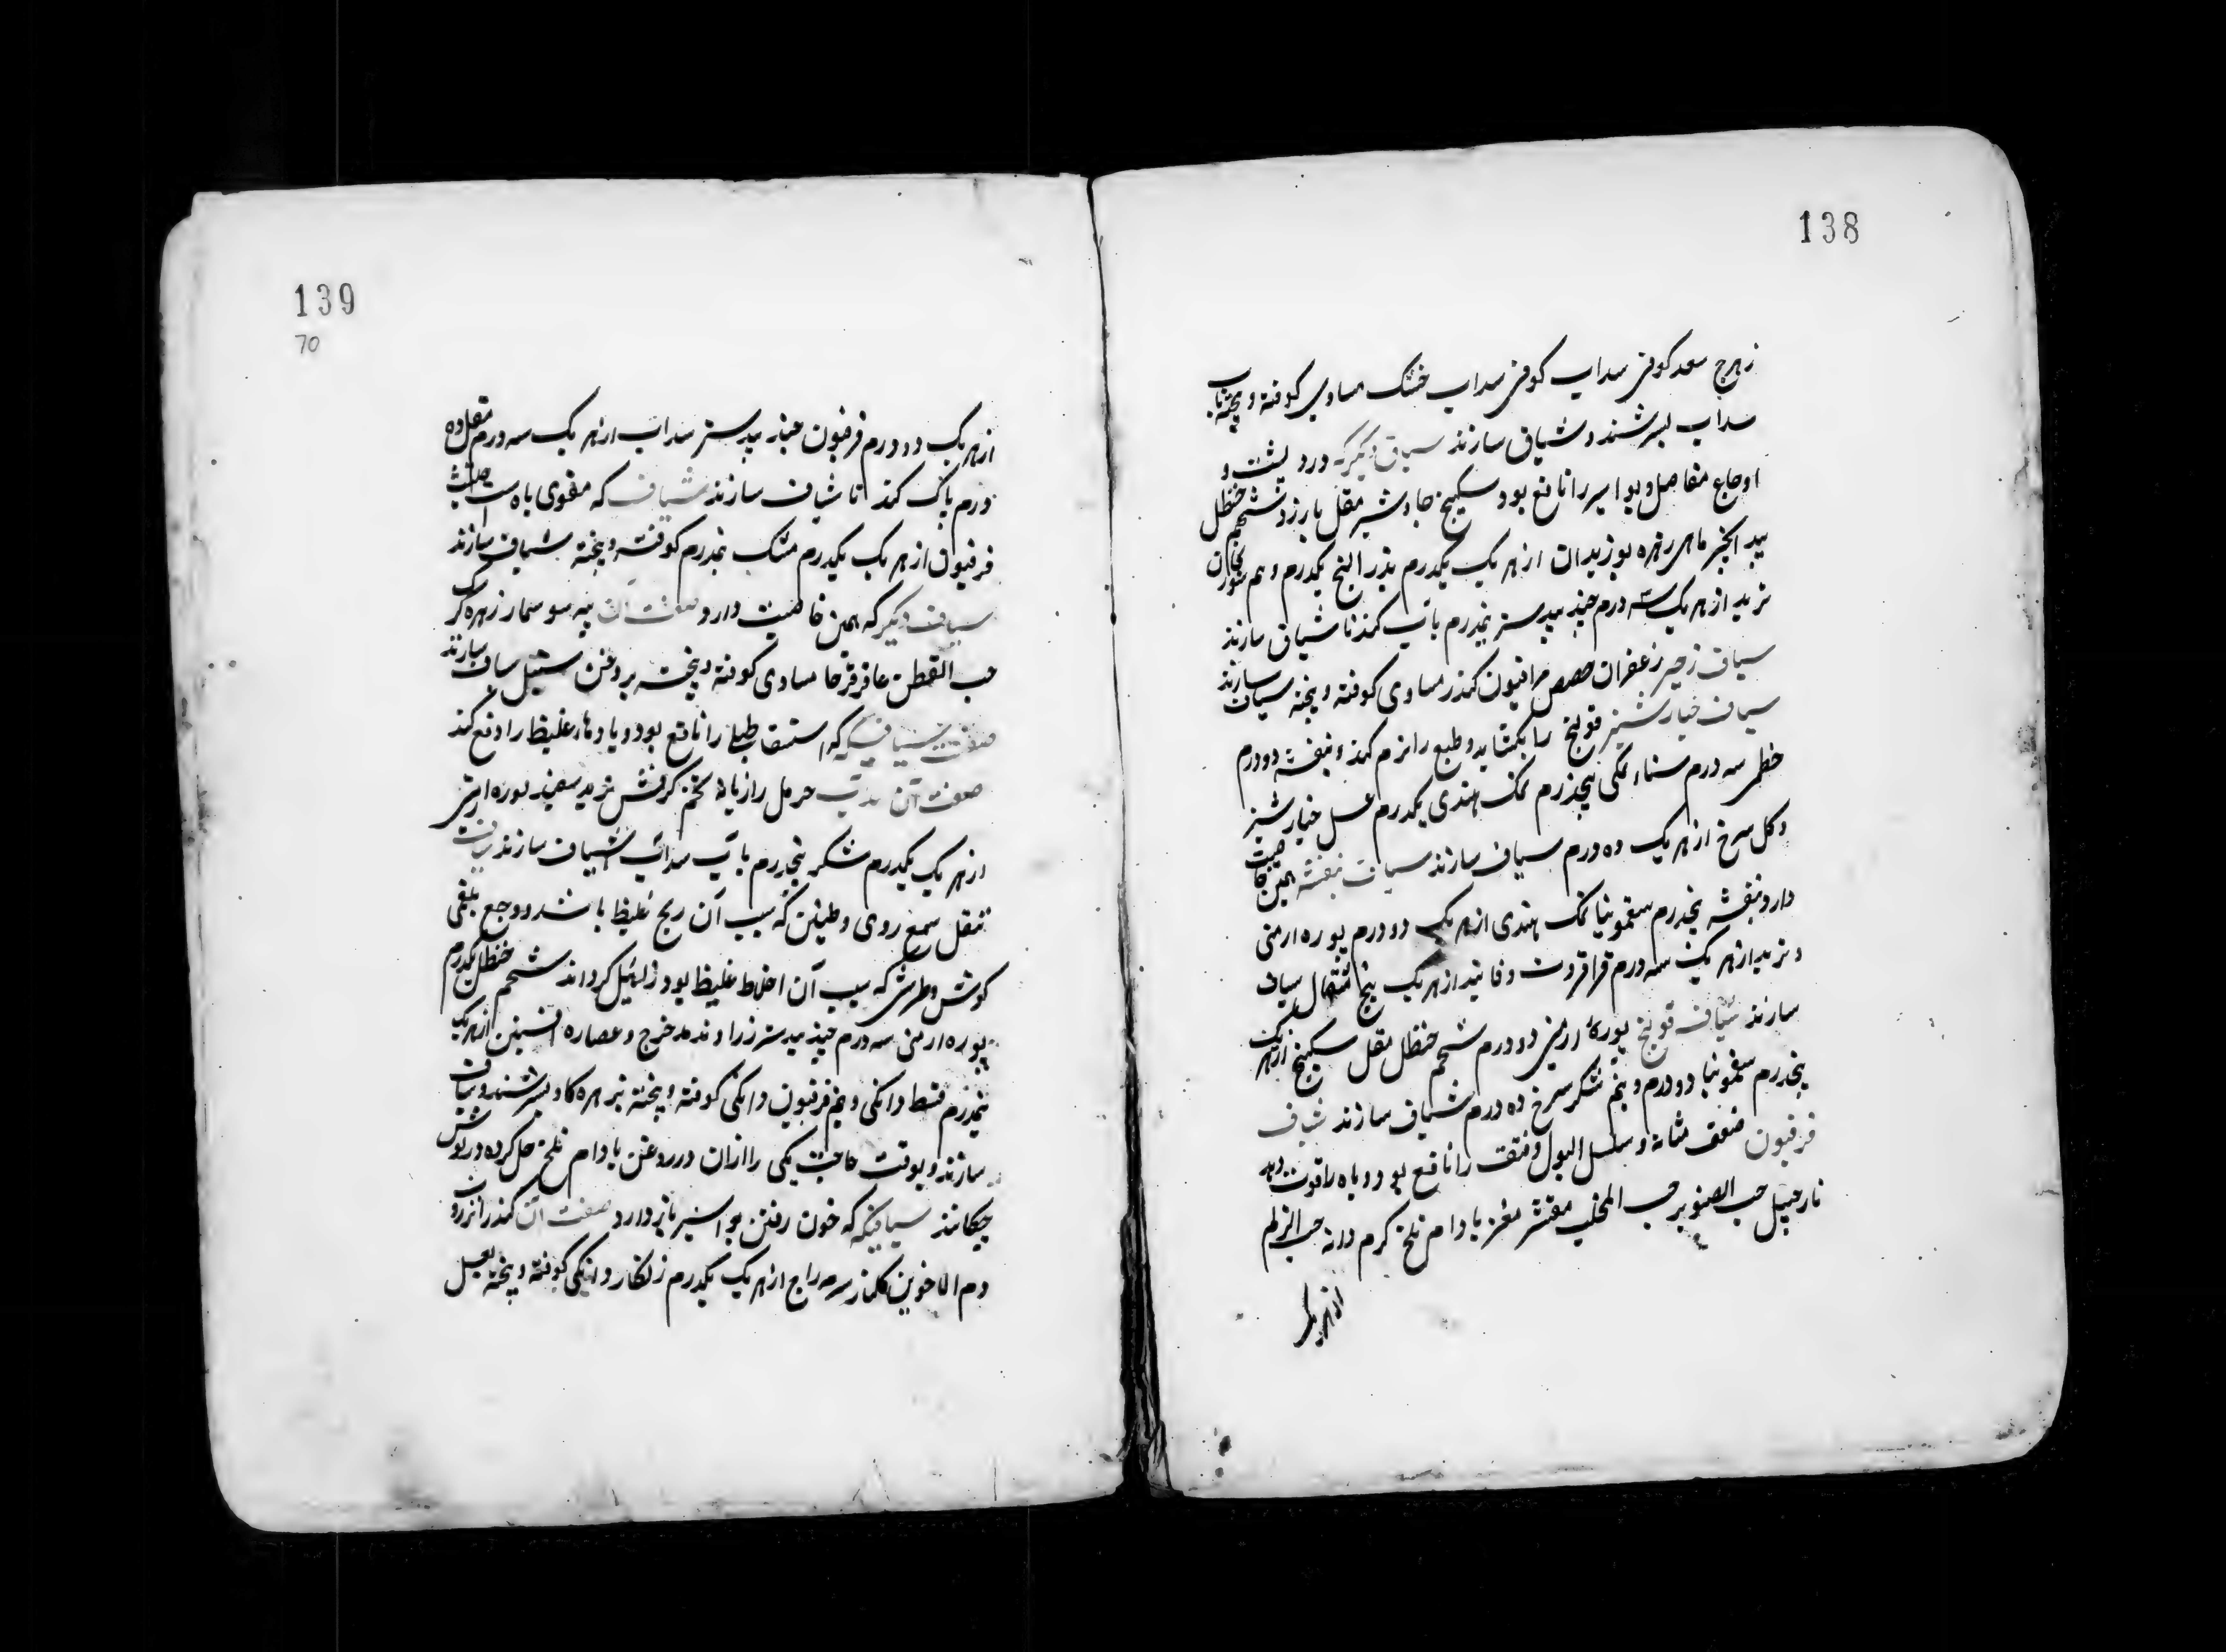 138
زهرج سعد کوفی سداب کوفی سداب خشک مساوی کوفته و پخته باب
سداب بسرشند و شیاف سازند سیاف دیگر که درد پشت و
اوجاع مفاصل و بواسیر را نافع بود سکبینج جاوشیر مقل بارزد شحم حنظل
بید انجیر ماهی زهره بوزیدان از هر یک یکدرم بذر البنج یکدرم و نیم سورنجان
تربد از هر یک سه درم جند بیدستر نیمدرم باب کند تا شیاف سازند
سیاف زحیر زعفران حضض مر افیون کندر مساوی کوفته و پخته سیاف سازند
سیاف خیار شنبر قولنج را بکشاید و طبع را نرم کند و بنفشه دو درم
خطمی سه درم سناء مکی پنجدرم نمک هندی یکدرم عسل خیار شنبر
و کل سرخ از هر یک ده درم سیاف سازند سیاف بنفشه همین خاصیت
دارد بنفشه پنجدرم سقمونیا نمک هندی از هر یک دو درم بوره ارمنی
و تربد از هر یک سه درم قراقروت و فانید از هر یک پنج مثقال سیاف
سازند شیاف قولنج بوره ارمنی دو درم شحم حنظل مقل سکبینج از هر یک
پنجدرم سقمونیا دو درم و نیم شکر سرخ ده درم شیاف سازند شیاف
فرفیون ضعف مثانه و سلسل البول و فتق را نافع بود و باه را قوت دهد
نارجیل حب الصنوبر حب المحلب مقشر مغز بادام تلخ کرم دانه حب الزلم
از هر یک
139
70
از هر یک دو درم فرفیون جند بیدستر سداب از هر یک سه درم مقل ده
درم باب کند تا شیاف سازند شیاف که مقوی باه است حلتیت
فرفیون از هر یک یکدرم مشک نیمدرم کوفته و پخته شیاف سازند
سیاف دیگر که همین خاصیت دارد صفت آن پیه سوسمار زهره کرک
حب القطن عاقرقرحا مساوی کوفته و پخته بروغن سنبل سیاف سازند
صفت سیافیکه استسقا طبلی را نافع بود و بادهاء غلیظ را دفع کند
صفت آن سداب حرمل رازیانه تخم کرفس تربد سفید بوره ارمنی
از هر یک یکدرم شکر پنجدرم باب سداب شیاف سازند شیاف
ثقل سمع روی و طنین که سبب آن ریح غلیظ باشد و وجع بلغمی
کوش و طرش که سبب آن اخلاط غلیظ بود زایل کرداند شحم حنظل یکدرم
بوره ارمنی سه درم جند بیدستر زراوند مدحرج و عصاره افسنتین از هر یک
نیمدرم قسط دانکی و نیم فرفیون دانکی کوفته و پخته بزهره کاو بسرشند و شیاف
سازند و بوقت حاجت یکی را ازان در روغن بادام تلخ حل کرده در کوش
چکانند سیافیکه خون رفتن بواسیر باز دارد صفت آن کندر انزروت
دم الاخوین کلنار سرمه زاج از هر یک یکدرم زنکار دانکی کوفته و پخته بعسل